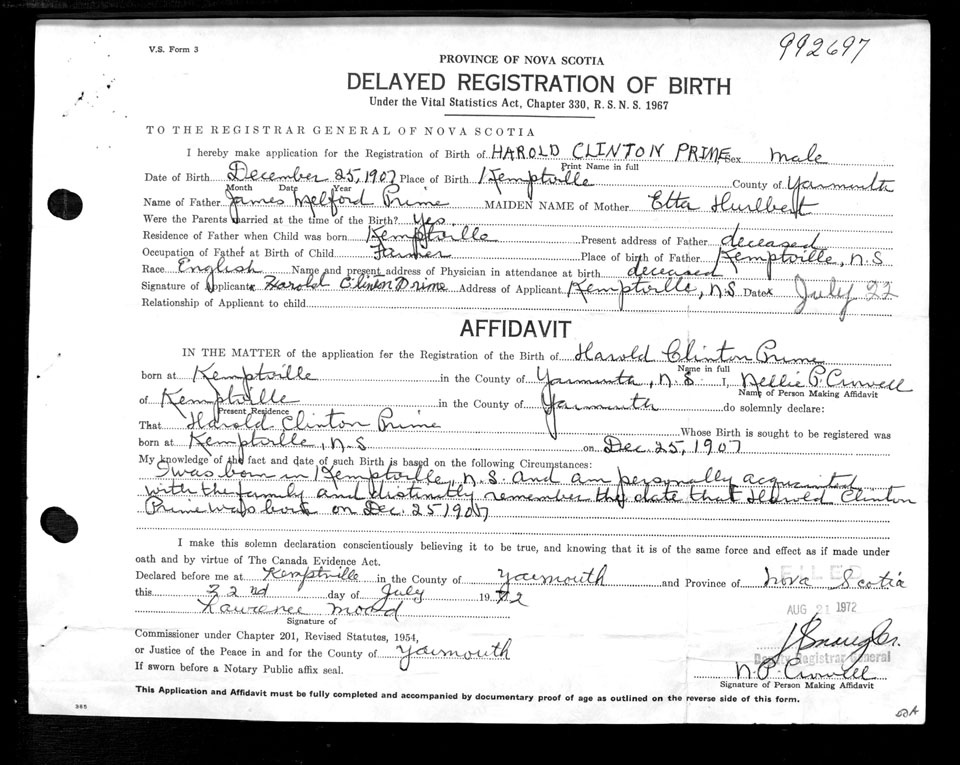 V.S. Form 3
992697
PROVINCE OF NOVA SCOTIA
DELAYED REGISTRATION OF BIRTH
Under the Vital Statistics Act, Chapter 330, R.S.N.S. 1967
TO THE REGISTRAR GENERAL OF NOVA SCOTIA
I hereby make application for the Registration of Birth of HAROLD CLINTON PRIME Sex male
Print Name in full
Date of Birth December 25, 1907 Place of Birth Kemptville County of Yarmouth
Month Date Year
Name of Father James Melford Prime MAIDEN NAME of Mother Etta Hurlbert
Were the Parents married at the time of the Birth? Yes
Residence of Father when Child was born Kemptville Present address of Father deceased
Occupation of Father at Birth of Child Farmer Place of birth of Father Kemptville, N.S
Race English Name and present address of Physician in attendance at birth deceased
Signature of Applicant Harold Clinton Prime Address of Applicant Kemptville, N.S. Date July 22
Relationship of Applicant to child
AFFIDAVIT
IN THE MATTER of the application for the Registration of the Birth of Harold Clinton Prime
Name in full
born at Kemptville in the County of Yarmouth, N.S. I, Nellie P. Crowell
Name of Person Making Affidavit
of Kemptville in the County of Yarmouth do solemnly declare:
Present Residence
That Harold Clinton Prime Whose Birth is sought to be registered was
born at Kemptville, N.S on Dec. 25, 1907
My knowledge of the fact and date of such Birth is based on the following Circumstances:
I was born in Kemptville, N.S. and am personally acquainted
with the family and distinctly remember the date that Harold Clinton
Prime was born on Dec. 25 1907
I make this solemn declaration conscientiously believing it to be true, and knowing that it is of the same force and effect as if made under
oath and by virtue of The Canada Evidence Act.
Declared before me at Kemptville in the County of Yarmouth and Province of Nova Scotia
FILED
this 22nd day of July 1972
AUG 21 1972
Lawrence Mood
Signature of
Commissioner under Chapter 201, Revised Statutes, 1954,
or Justice of the Peace in and for the County of Yarmouth
Deputy Registrar General
If sworn before a Notary Public affix seal.
N P Crowell
Signature of Person Making Affidavit
This Application and Affidavit must be fully completed and accompanied by documentary proof of age as outlined on the reverse side of this form.
365